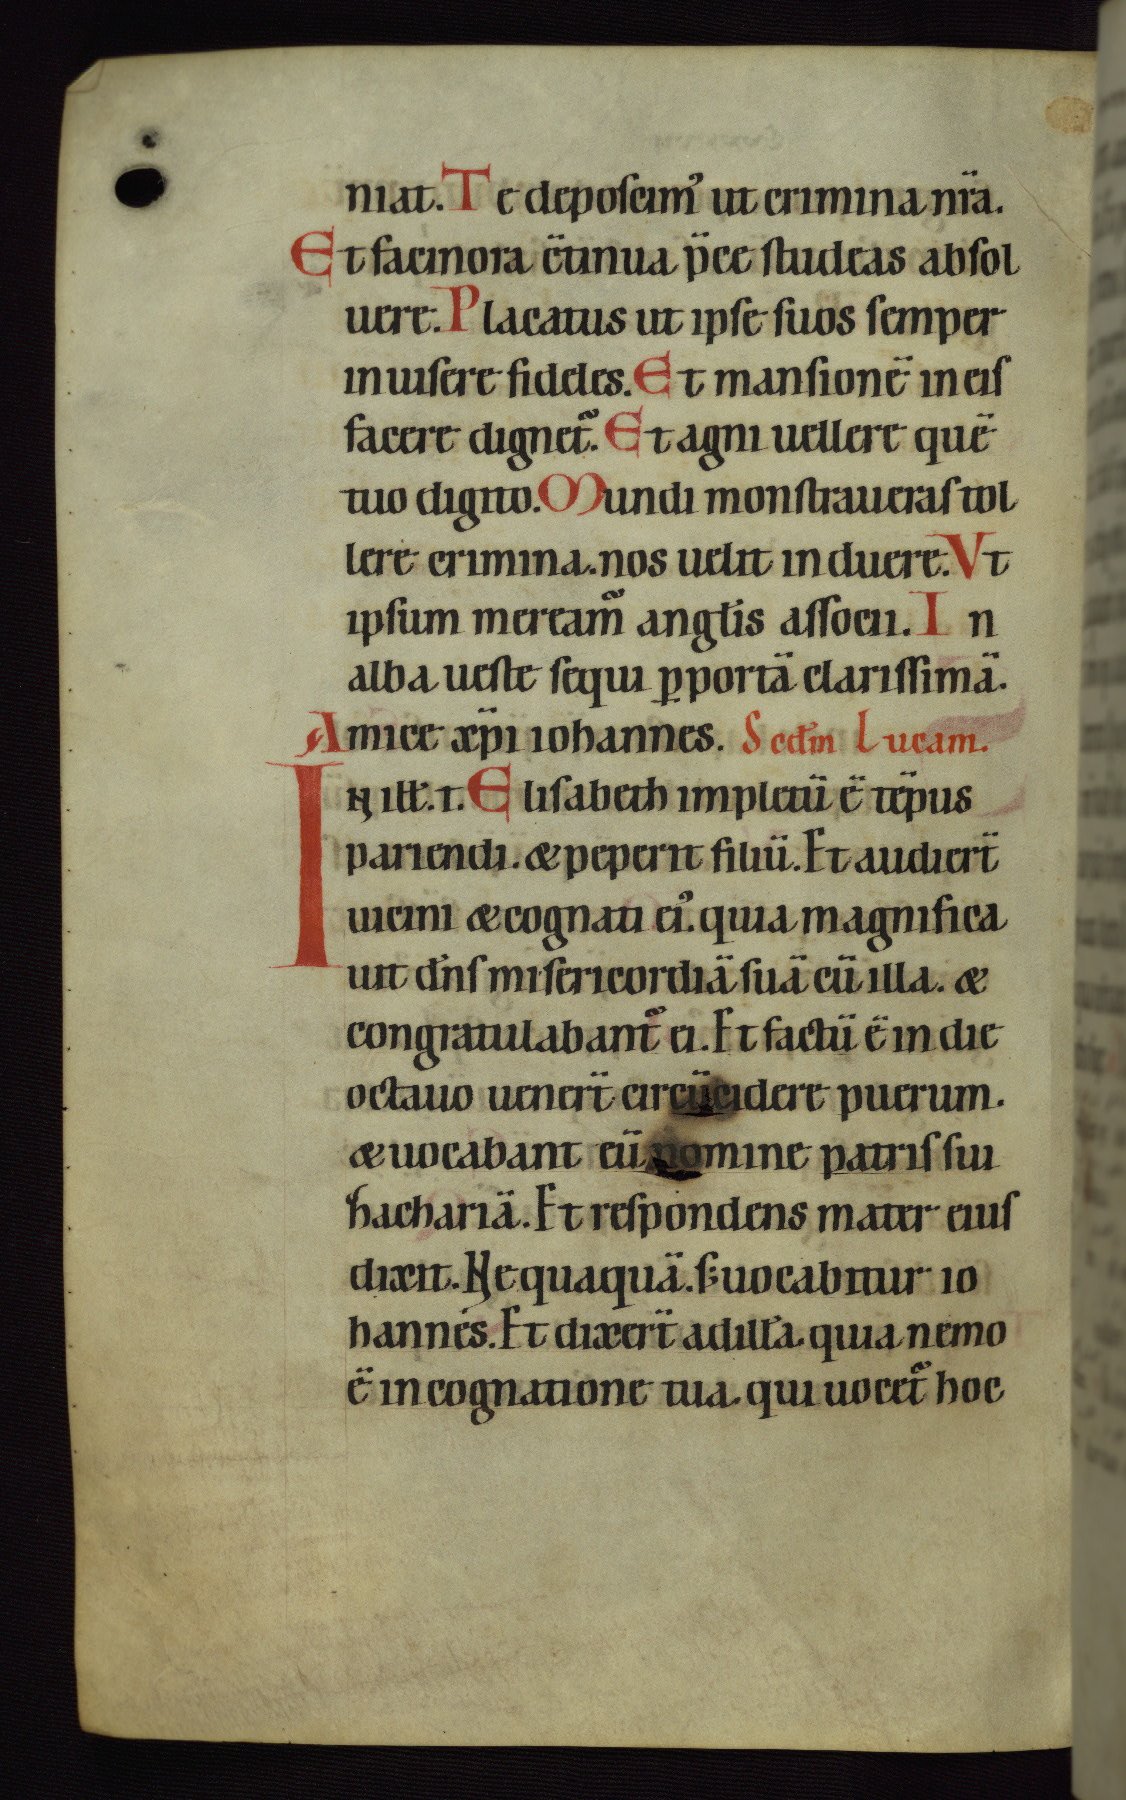 niat. Te deposcim᷒ ut crimina nr̄a.
Et facinora c̄tinua p̄ce studeas absol
uere. Placatus ut ipse suos semper
inuisere fideles. Et mansionē in eis
facere dignet᷑. Et agni uellere quē
tuo digito. Mundi monstraueras tol
lere crimina. nos uelit induere. Vt
ipsum meream᷑ angłis associi. In
alba ueste sequi p portā clarissimā.
Amice xp̄i iohannes. Scdm̄ Lucam.
IN ilł. t. Elisabeth impletū ē tēpus
pariendi. & peperit filiū. Et audiert̄
uicini & cognati ei᷒. quia magnifica
uit dn̄s misericordiā suā cū illa. &
congratulabant᷑ ei. Et factū ē in die
octauo uenert̄ circūcidere puerum.
& uocabant eū nomine patris sui
hachariā. Et respondens mater eius
dixit. Nequaquā. s; uocabitur io
hannes. Et dixert̄ ad illā. quia nemo
ē in cognatione tua. qui uocet᷑ hoc